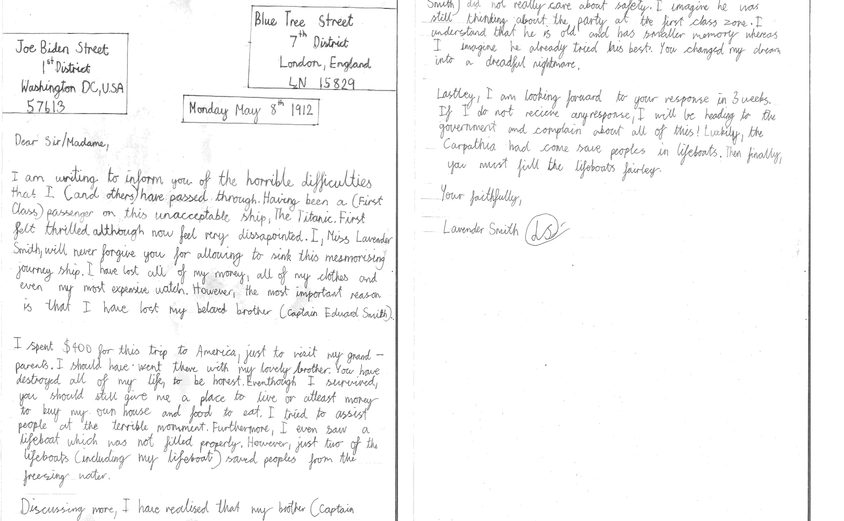 Blue Tree Street
7th District
London, England
LN 15829
Joe Biden Street
1st District
Washington DC, USA
57613
Monday May 8th 1912
Dear Sir/Madame,
I am writing to inform you of the horrible difficulties
that I (and others) have passed through. Having been a (First
Class) passenger on this unacceptable ship, The Titanic. First
felt thrilled although now feel very dissapointed. I, Miss Lavender
Smith, will never forgive you for allowing to sink this mesmorising
journey ship. I have lost all of my money, all of my clothes and
even my most expensive watch. However, the most important reason
is that I have lost my beloved brother (Captain Edward Smith).
I spent $400 for this trip to America, just to visit my grand-
parents. I should have went there with my lovely brother. You have
destroyed all of my life, to be honest. Eventhough I survived,
you should still give me a place to live or atleast money
to buy my own house and food to eat. I tried to assist
people at the terrible momment. Furthermore, I even saw a
lifeboat which was not filled properly. However, just two of the
lifeboats (including my lifeboat) saved peoples from the
freezing water.
Discussing more, I have realised that my brother (Captain
Smith) did not really care about safety. I imagine he was
still thinking about the party at the first class zone. I
understand that he is old and has smaller memory whereas
I imagine he already tried his best. You changed my dream
into a dreadful nightmare.
Lastley, I am looking forward to your response in 3 weeks.
If I do not recieve any response, I will be heading to the
government and complain about all of this! Luckily, the
Carpathia had come save peoples in lifeboats. Then finally,
you must fill the lifeboats fairley.
Your faithfully,
Lavender Smith LS